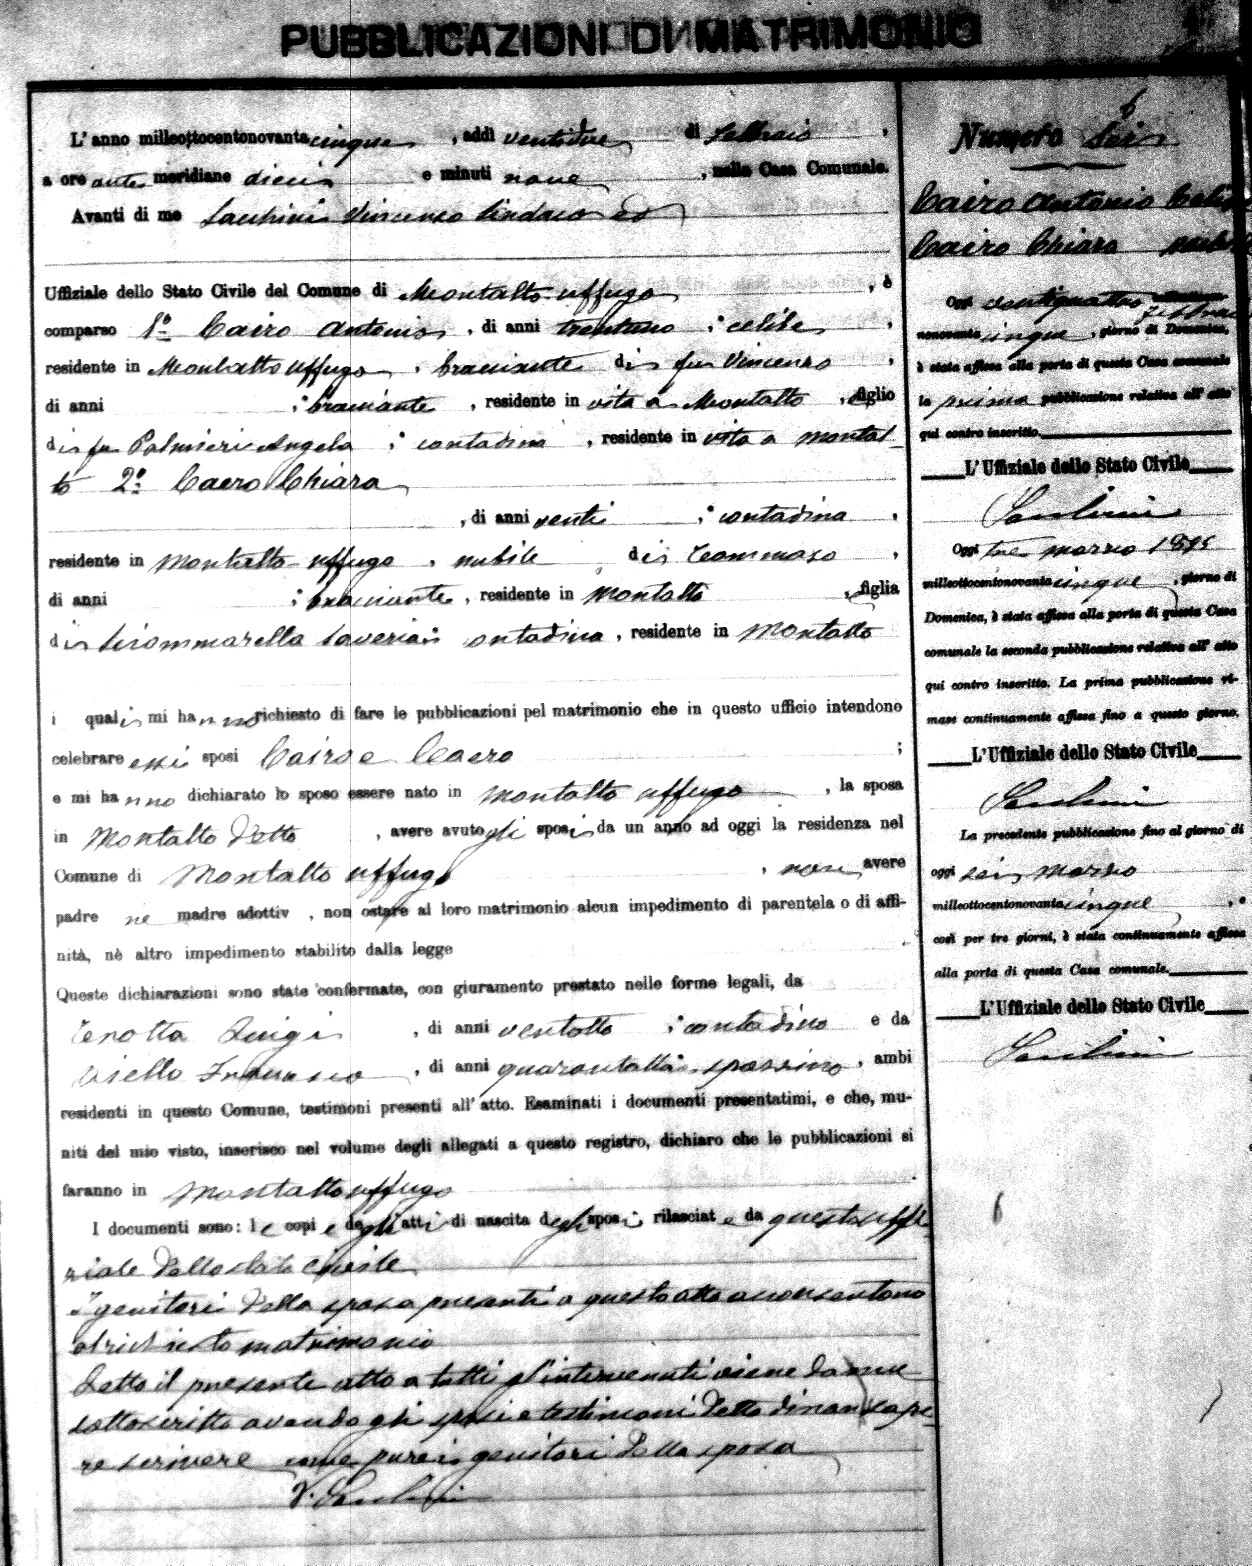 PUBBLICAZIONI DI MATRIMONIO
L' anno milleottocentonovanta cinque , addì ventidue di Febbraio ,
a ore ante meridiane dieci e minuti nove , nella Casa Comunale.
Avanti di me Vincenzo Sindaco ed
Uffiziale dello Stato Civile del Comune di Montalto Uffugo , è
comparso 1º Cairo Antonio , di anni trentuno ; celibe ,
residente in Montalto Uffugo , bracciante di fu Vincenzo ,
di anni ; bracciante , residente in vita a Montalto , figlio
di fu Palmieri Angela ; contadina , residente in vita a Montal-
to 2º Caero Chiara
, di anni venti ; contadina ,
residente in Montalto Uffugo , nubile di Tommaso ,
di anni ; bracciante , residente in Montalto , figlia
di Saveria contadina , residente in Montalto
i quali mi hanno richiesto di fare le pubblicazioni pel matrimonio che in questo ufficio intendono
celebrare essi sposi Cairo e Caero ;
e mi hanno dichiarato lo sposo essere nato in Montalto Uffugo , la sposa
in Montalto detto , avere avuto gli sposi da un anno ad oggi la residenza nel
Comune di Montalto Uffugo , non avere
padre nè madre adottiv , non ostare al loro matrimonio alcun impedimento di parentela o di affi-
nità, nè altro impedimento stabilito dalla legge
Queste dichiarazioni sono state confermate, con giuramento prestato nelle forme legali, da
Luigi , di anni ventotto ; contadino e da
Aiello Francesco , di anni quarantatta spazzino , ambi
residenti in questo Comune, testimoni presenti all' atto. Esaminati i documenti presentatimi, e che, mu-
niti del mio visto, inserisco nel volume degli allegati a questo registro, dichiaro che le pubblicazioni si
faranno in Montalto Uffugo .
I documenti sono: le copie degli atti di nascita degli sposi rilasciate da questo uffi-
ziale dello stato civile
I genitori della sposa presenti a questo atto acconsentono
al richiesto matrimonio
Letto il presente atto a tutti gl'intervenuti viene da me
sottoscritto avendo gli sposi e testimoni detto di non sape-
re scrivere come pure i genitori della sposa
6
Numero Sei
Cairo Antonio celibe
Cairo Chiara nubile
Oggi ventiquattro Febbraio
novanta cinque , giorno di Domenica,
è stata affissa alla porta di questa Casa comunale
la prima pubblicazione relativa all' atto
qui contro inscritto.
L' Uffiziale dello Stato Civile
Oggi tre marzo 1895
milleottocentonovanta cinque , giorno di
Domenica, è stata affissa alla porta di questa Casa
comunale la seconda pubblicazione relativa all' atto
qui contro inscritto. La prima pubblicazione ri-
mase continuamente affissa fino a questo giorno.
L'Uffiziale dello Stato Civile
La precedente pubblicazione fino al giorno di
oggi sei marzo
milleottocentonovanta cinque , e
così per tre giorni, è stata continuamente affissa
alla porta di questa Casa comunale.
L'Uffiziale dello Stato Civile